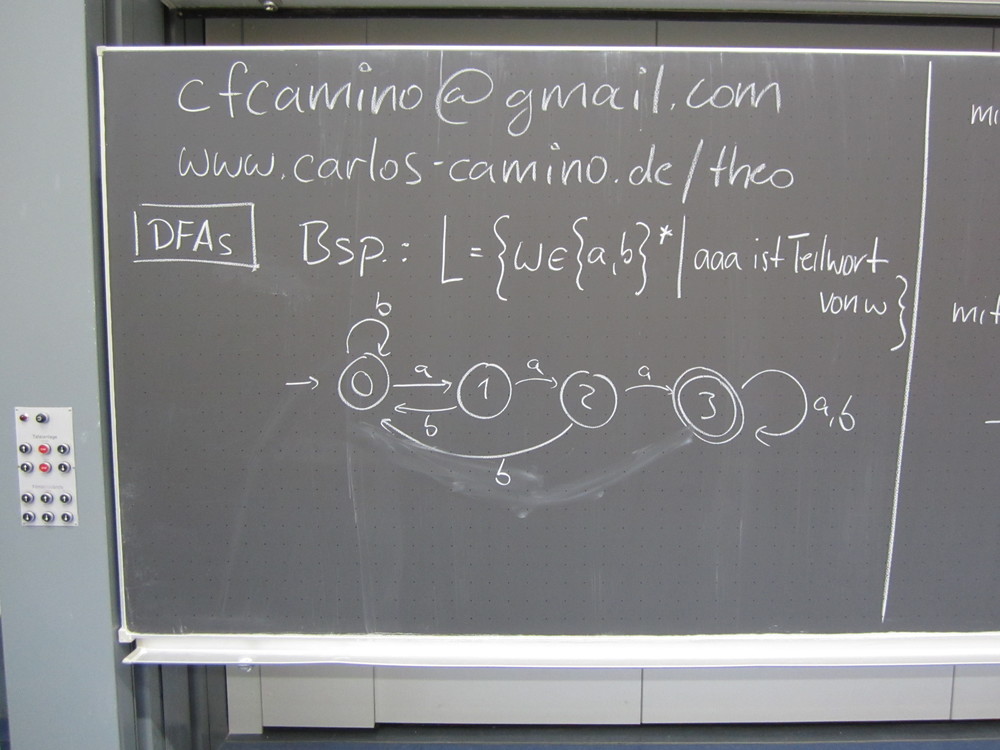 cfcamino@gmail.com
www.carlos-camino.de/theo
DFAs Bsp.: L = {w∈{a,b}* | aaa ist Teilwort
von w}
b
→ 0 a 1 a 2 a 3 a,b
b
b
mit